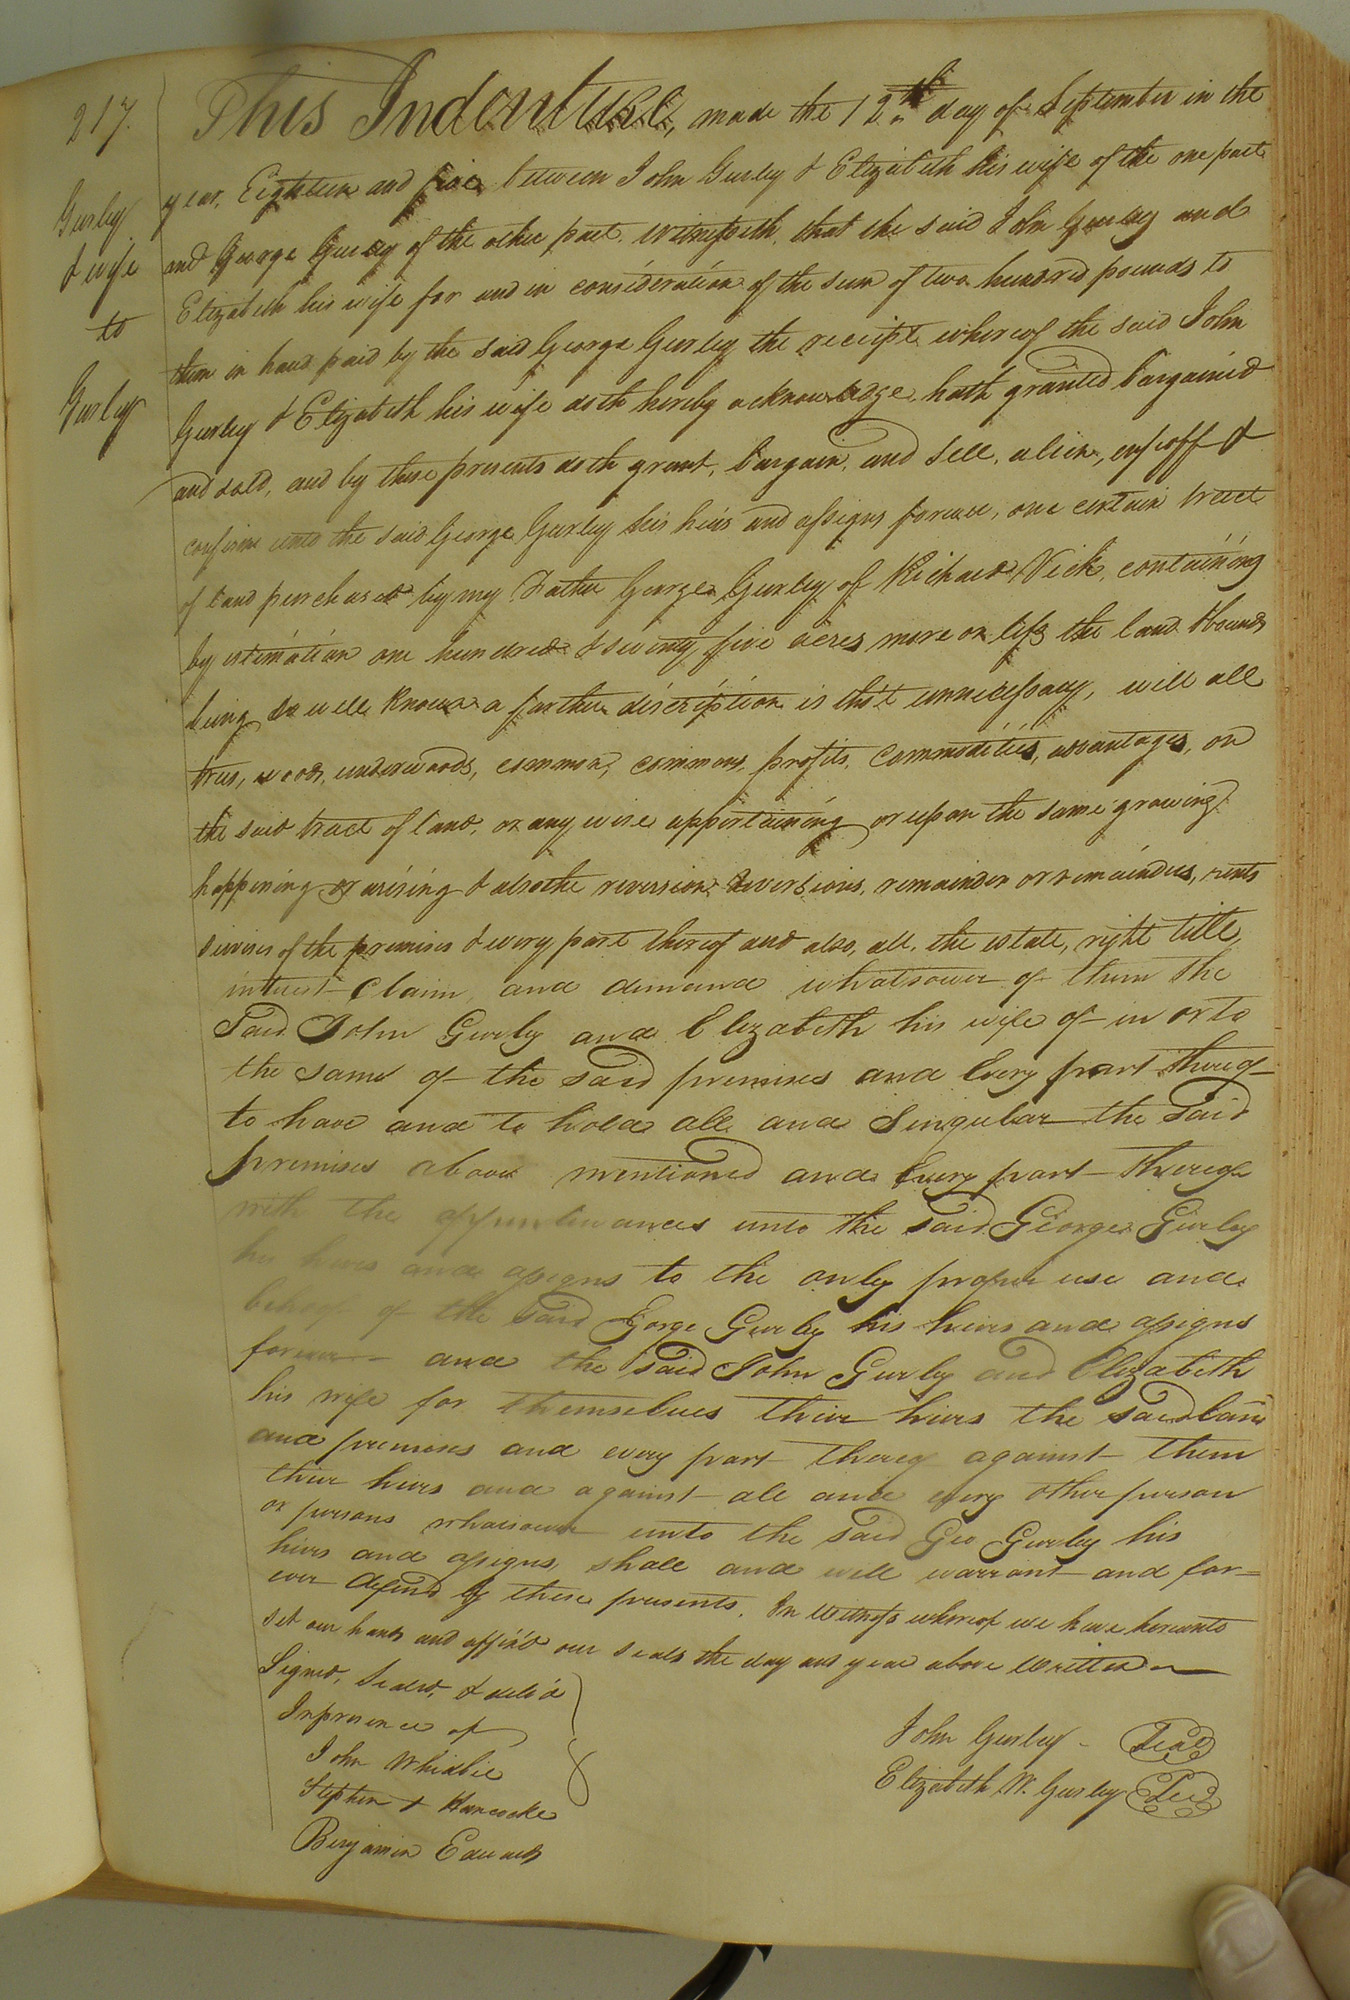 217.
Gurley
& wife
to
Gurley
This Indenture, made the 12th day of September in the
year, Eighteen and five between John Gurley & Elizabeth his wife of the one part
and George Gurley of the other part. Witnesseth, that the said John Gurley and
Elizabeth his wife for and in consideration of the sum of two hundred pounds to
them in hand paid by the said George Gurley the receipt whereof the said John
Gurley & Elizabeth his wife doth hereby acknowledge, hath granted bargained
and sold, and by these presents doth grant, bargain, and sell, alien, enfeoff &
confirm unto the said George Gurley his heirs and assigns forever, one certain tract
of land purchased by my Father George Gurley of Richard Vick, containing
by estimation one hundred & seventy five acres more or less the land & bounds
being so well known a further discription is tho't unnecessary, will all
trees, woods, underwoods, common, commons, profits, commodities, advantages, on
the said tract of land, or any wise appertaining or upon the same growing
happening or arising & also the reversion, reversions, remainder or remainders, rents
& services of the premises & every part thereof and also, all, the estate, right title,
interest claim, and demand whatsoever of them the
Said John Gurley and Elizabeth his wife of in or to
the same of the said premises and Every part thereof
to have and to hold all and Singular the Said
premises above mentioned and Every part thereof
with the appurtenances unto the said George Gurley
his heirs and assigns to the only proper use and
behoof of the Said Gorge Gurley his heirs and assigns
forever and the said John Gurley and Elizabeth
his wife for themselves their heirs the said land
and premises and every part thereof against them
their heirs and against all and every other person
or persons whatsoever unto the said Geo Gurley his
heirs and assigns, shall and will warrant and for=
ever defend by these presents. In Witness whereof we have hereunto
set our hands and affix'd our seals the day and year above written
Signed, Sealed, & deliv'd
In presence of
John Whidbie
Stephen & Hancocke
Benjamin Edwards
John Gurley Seal
Elizabeth W. Gurley Seal